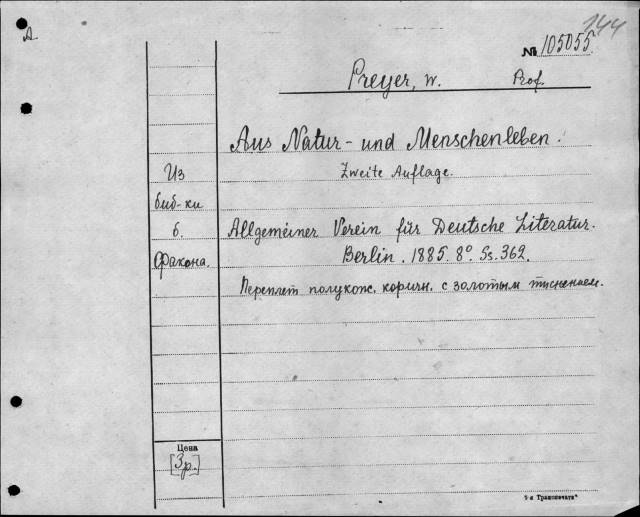 144
A
№ 105055
Preyer, W. Prof.
Aus Natur- und Menschenleben.
Zweite Auflage.
Из
биб-ки
б.
Фракона.
Allgemeiner Verein für Deutsche Literatur.
Berlin. 1885. 8º. Ss. 362.
Переплет полукож. коричн. с золотым тиснением.
Цена
[3 р.]